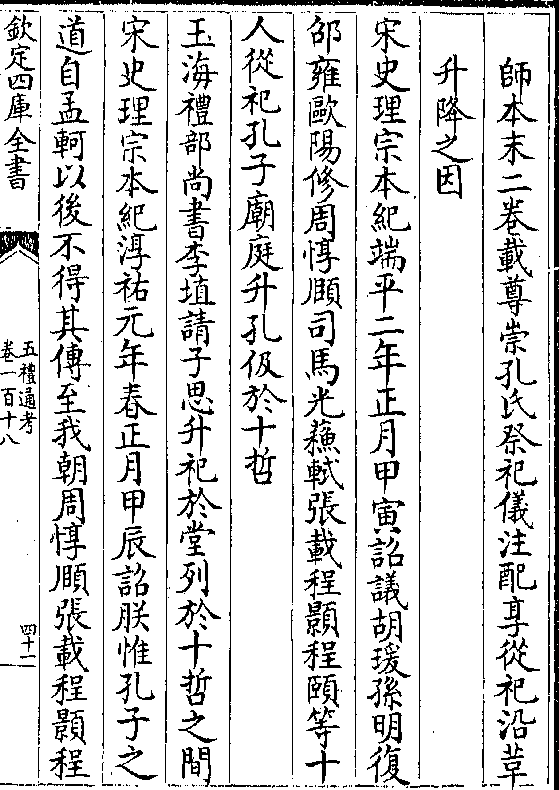 師本末二卷載尊崇孔氏祭祀儀注配享從祀沿革
升降之因
宋史理宗本紀端平二年正月甲寅詔議胡瑗孫明復
邵雍歐陽修周惇頤司馬光蘇軾張載程顥程頤等十
人從祀孔子廟庭升孔伋於十哲
玉海禮部尚書李埴請子思升祀於堂列於十哲之間
宋史理宗本紀淳祐元年春正月甲辰詔朕惟孔子之
道自孟軻以後不得其傳至我朝周惇頤張載程顥程
欽定四庫全書
五禮通考
卷一百十八
四十二